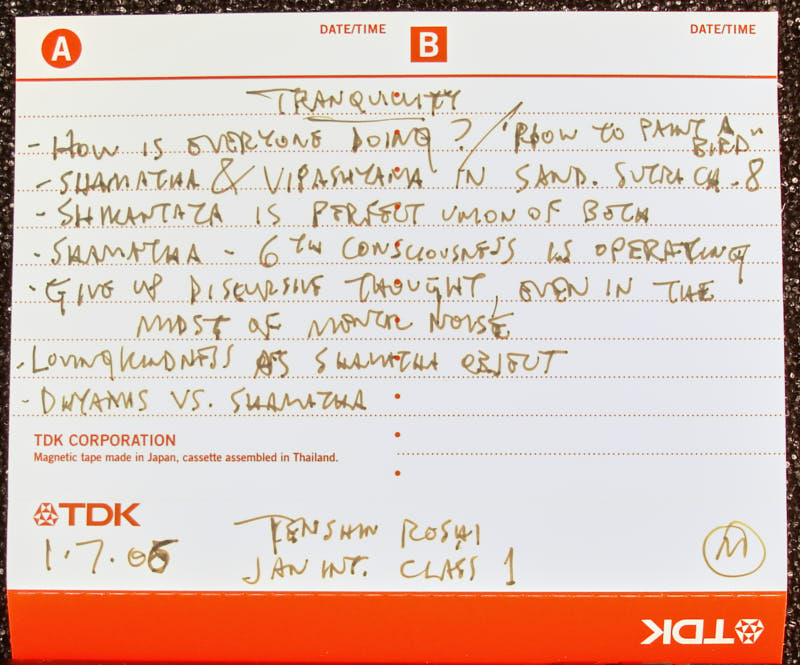 A DATE/TIME B DATE/TIME
TRANQUILITY
- HOW IS EVERYONE DOING? / "HOW TO PAINT A BIRD"
- SHAMATHA & VIPASHYANA IN SAND. SUTRA CH. 8
- SHIKANTAZA IS PERFECT UNION OF BOTH
- SHAMATHA - 6TH CONSCIOUSNESS IS OPERATING
- GIVE UP DISCURSIVE THOUGHT, EVEN IN THE
MIDST OF MENTAL NOISE
- LOVINGKINDNESS AS SHAMATHA OBJECT
- DHYANAS VS. SHAMATHA
TDK CORPORATION
Magnetic tape made in Japan, cassette assembled in Thailand.
TDK
TENSHIN ROSHI
1.7.06
JAN INT. CLASS 1
M
TDK